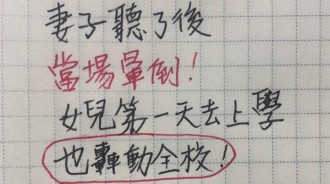 妻子聽了後
當場暈倒！
女兒第一天去上學
也轟動全校！